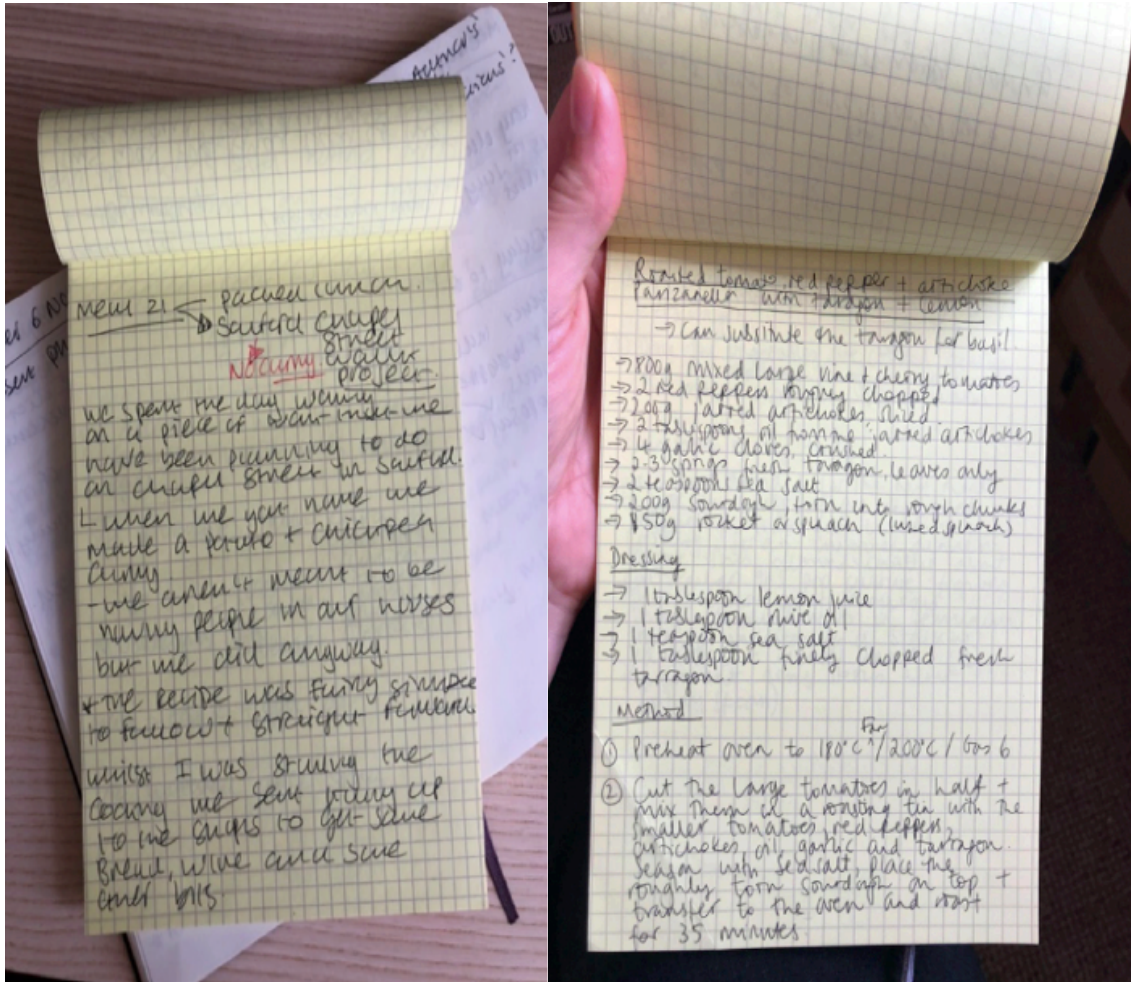 Actions
6 No
meal 21
packed lunch.
Salford Chapel
Street
walk
project.
No curry
we spent the day
on a piece of work that we
have been planning to do
on Chapel Street in Salford.
when we got home we
made a potato + chickpea
curry
- we aren't meant to be
having people in our houses
but we did anyway.
the recipe was fairly simple
to follow + straight forward
whilst I was starting the
cooking we sent up
to the shops to get some
Bread, wine and some
other bits.
OUT
Roasted tomato, red pepper + artichoke
panzanella with tarragon + lemon
→ Can substitute the taragon for basil.
→ 800g mixed large vine + cherry tomatoes
→ 2 red peppers roughly chopped
→ 200g jarred artichokes, sliced
→ 2 tablespoons oil from the jarred artichokes
→ 4 garlic cloves, crushed
→ 2-3 sprigs fresh taragon, leaves only
→ 2 teaspoons sea salt
→ 200g sourdough, torn into rough chunks
→ 50g rocket or spinach (I used spinach)
Dressing
→ 1 tablespoon lemon juice
→ 1 tablespoon olive oil
→ 1 teaspoon sea salt
→ 1 tablespoon finely chopped fresh
tarragon
Method
Fan
① Preheat oven to 180°C /200°C / Gas 6
② Cut the large tomatoes in half +
mix them in a roasting tin with the
smaller tomatoes, red peppers,
artichokes, oil, garlic and tarragon.
Season with sea salt, place the
roughly torn sourdough on top +
transfer to the oven and roast
for 35 minutes